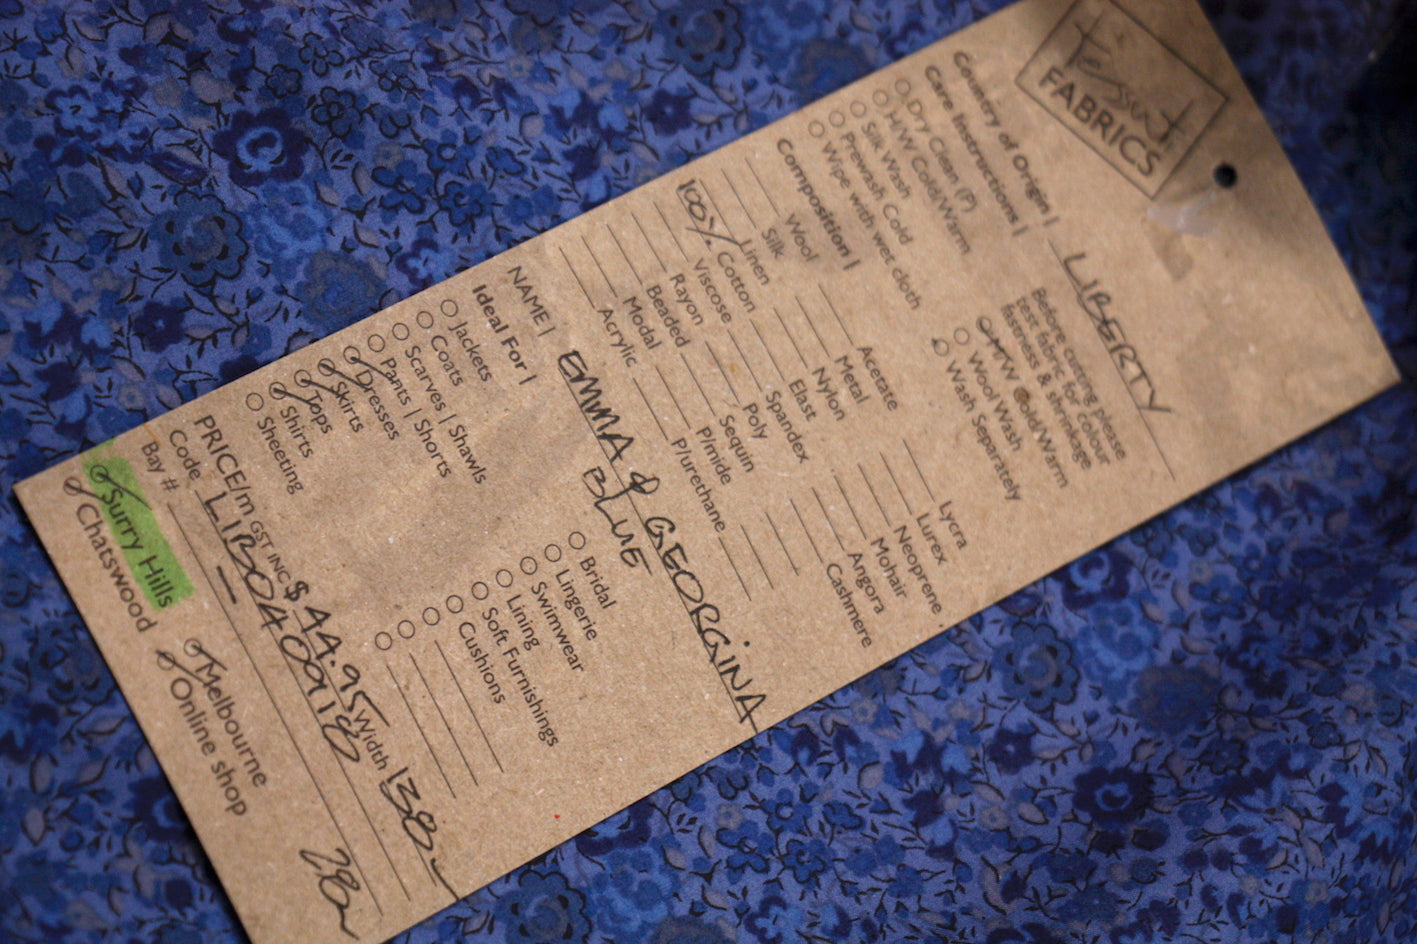 Tessuti
FABRICS
Country of Origin | LIBERTY
Care Instructions |
Dry Clean (P)
H/W Cold/Warm
Silk Wash
Prewash Cold
Wipe with wet cloth
Before cutting please
test fabric for colour
fastness & shrinkage
M/W Cold/Warm
Wool Wash
Wash Separately
Composition |
Wool
Silk
Linen
100% Cotton
Viscose
Rayon
Beaded
Modal
Acrylic
Acetate
Metal
Nylon
Elast
Spandex
Poly
Sequin
P/mide
P/urethane
Lycra
Lurex
Neoprene
Mohair
Angora
Cashmere
NAME | EMMA & GEORGINA
BLUE
Ideal For |
Jackets
Coats
Scarves | Shawls
Pants | Shorts
Dresses
Skirts
Tops
Shirts
Sheeting
Bridal
Lingerie
Swimwear
Lining
Soft Furnishings
Cushions
PRICE/m GST INC $44.95 Width 138
Code LIB040918
Bay #
Surry Hills
Chatswood
Melbourne
Online shop